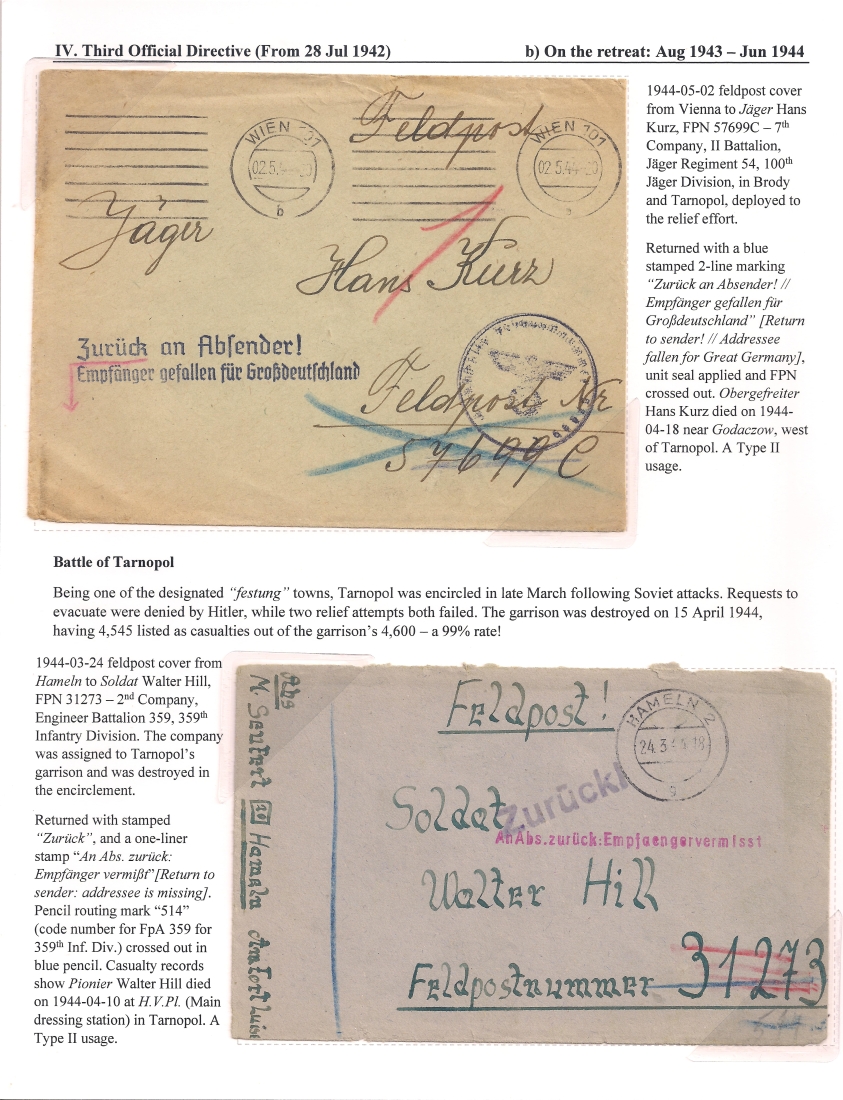 IV. Third Official Directive (From 28 Jul 1942)
b) On the retreat: Aug 1943 – Jun 1944
WIEN 101
02.5.
b
Feldpost
WIEN 101
02.5.44-20
Jäger
Hans Kurz
Zurück an Absender!
Empfänger gefallen für Großdeutschland
Feldpost Nr
57699C
1944-05-02 feldpost cover
from Vienna to Jäger Hans
Kurz, FPN 57699C – 7th
Company, II Battalion,
Jäger Regiment 54, 100th
Jäger Division, in Brody
and Tarnopol, deployed to
the relief effort.
Returned with a blue
stamped 2-line marking
“Zurück an Absender! //
Empfänger gefallen für
Großdeutschland” [Return
to sender! // Addressee
fallen for Great Germany],
unit seal applied and FPN
crossed out. Obergefreiter
Hans Kurz died on 1944-
04-18 near Godaczow, west
of Tarnopol. A Type II
usage.
Battle of Tarnopol
Being one of the designated “festung” towns, Tarnopol was encircled in late March following Soviet attacks. Requests to
evacuate were denied by Hitler, while two relief attempts both failed. The garrison was destroyed on 15 April 1944,
having 4,545 listed as casualties out of the garrison’s 4,600 – a 99% rate!
1944-03-24 feldpost cover from
Hameln to Soldat Walter Hill,
FPN 31273 – 2nd Company,
Engineer Battalion 359, 359th
Infantry Division. The company
was assigned to Tarnopol’s
garrison and was destroyed in
the encirclement.
Returned with stamped
“Zurück”, and a one-liner
stamp “An Abs. zurück:
Empfänger vermißt”[Return to
sender: addressee is missing].
Pencil routing mark “514”
(code number for FpA 359 for
359th Inf. Div.) crossed out in
blue pencil. Casualty records
show Pionier Walter Hill died
on 1944-04-10 at H.V.Pl. (Main
dressing station) in Tarnopol. A
Type II usage.
Abs
M. Seufert 20 Hameln
Feldpost!
HAMELN 2
24.3.44-18
Soldat
Zurück!
An Abs.zurück:Empfaengervermisst
Walter Hill
Feldpostnummer 31273